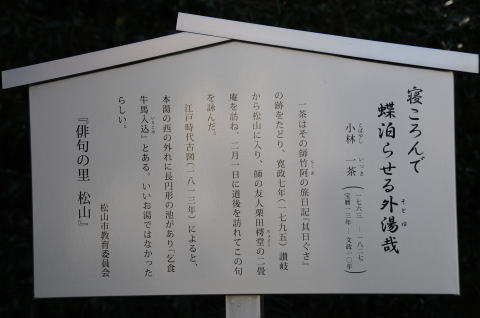 寝ころんで
蝶泊らせる外湯哉
そとゆ
小林 一茶
こばやし いっさ
一七六三 ― 一八二七
(宝暦一三年―文政一〇年)
一茶はその師竹阿の旅日記『其日ぐさ』
ちくあ
の跡をたどり、寛政七年(一七九五)讃岐
から松山に入り、師の友人栗田樗堂の二畳
ちょどう
庵を訪ね、二月一日に道後を訪れてこの句
を詠んだ。
江戸時代古図(一八一三年)によると、
本湯の西の外れに長円形の池があり『乞食
牛馬入込』とある。いいお湯ではなかった
いりこみ
らしい。
松山市教育委員会
『俳句の里 松山』